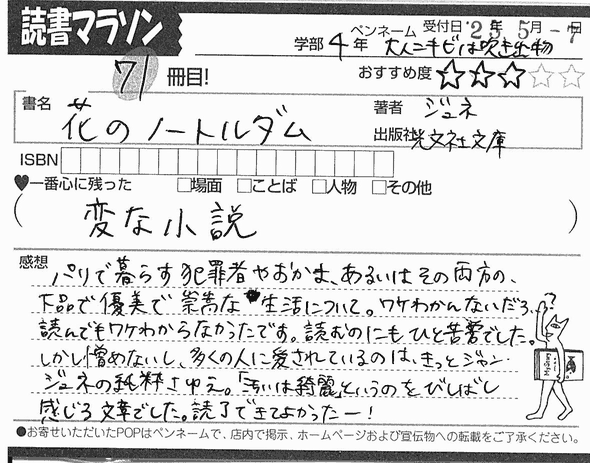 読書マラソン
71 冊目!
学部 4年 ペンネーム 大人ニキビは吹き出物 受付日 '23年 5月 -7日
おすすめ度 ★★★☆☆
書名 花のノートルダム
著者 ジュネ
出版社 光文社文庫
ISBN
♥一番心に残った □場面 □ことば □人物 □その他
(変な小説)
感想
パリで暮らす犯罪者やおかま、あるいはその両方の、
下品で優美で崇高な生活について。ワケわかんないだろ、
読んでもワケわからなかったです。読むのにもひと苦労でした。
しかし憎めないし、多くの人に愛されているのは、きっとジャン・
ジュネの純粋さゆえ。「汚いは綺麗」というのをびしばし
感じる文章でした。読了できてよかったー!
●お寄せいただいたPOPはペンネームで、店内で掲示、ホームページおよび宣伝物への転載をご了承ください。